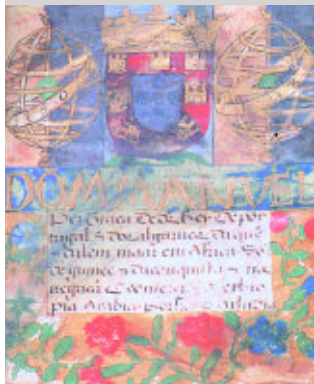 DOM MANVEL
Per graça de ds Rey de por
tugal & dos algarues daquē
& dalem maar em Africa Sõr
de guinee & da conquista & na
uegaçã & comercio d ethio
pia Arabia persia & da India